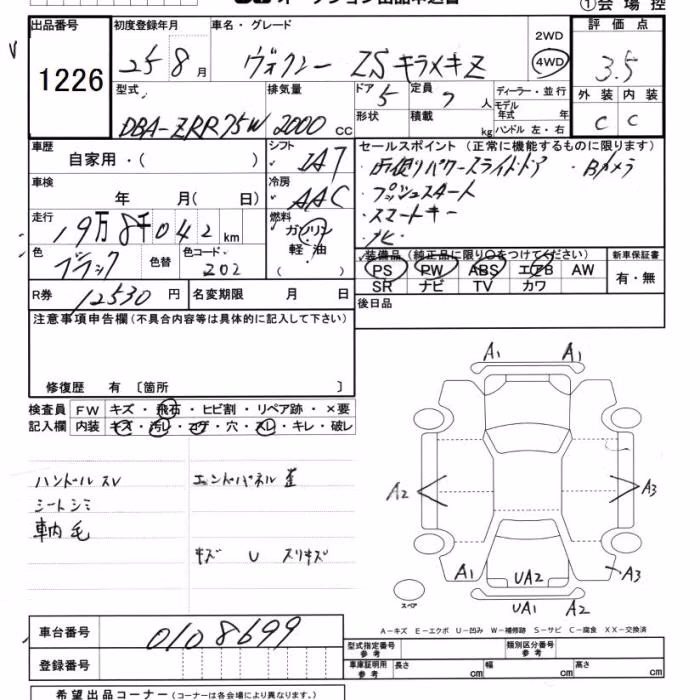 ①会場控
出品番号 初度登録年月 車名・グレード 評価点
1226
25 8月 ヴォクシー ZSキラメキZ 2WD 4WD 3.5
型式 排気量 ドア 5 定員 7人 ディーラー・並行 外装 内装
DBA-ZRR75W 2000cc 形状 積載 kg モデル年式 年 ハンドル 左・右 C C
車歴 自家用・( ) シフト IAT セールスポイント (正常に機能するものに限ります)
・両便りパワースライドドア ・Bカメラ
車検 年 月( 日) 冷房 AAC ・プッシュスタート
・スマートキー
走行 19万8千042km 燃料 ガソリン 軽油 ( ) ・ナビ・
色 ブラック 色替 色コード 202
装備品 (純正品に限り○をつけてください) 新車保証書
PS PW ABS エアB AW 有・無
SR ナビ TV カワ
R券 12530円 名変期限 月 日 後日品
注意事項申告欄(不具合内容等は具体的に記入して下さい)
修復歴 有 〔箇所 〕
検査員 FW キズ・飛石・ヒビ割・リペア跡・×要
記入欄 内装 キズ・汚レ・コゲ・穴・スレ・キレ・破レ
ハンドル スレ エンドパネル 歪
シートシミ
車内 毛
キズ U スリキズ
A1 A1
A2 A3
A1 UA2 A3
スペア UA1 A2
A-キズ E-エクボ U-凹み W-補修跡 S-サビ C-腐食 XX-交換済
車台番号 0108699
型式指定番号 参考 類別区分番号 参考
登録番号 車庫証明用 参考 長さ cm 幅 cm 高さ cm
希望出品コーナー (コーナーは各会場により異なります。)